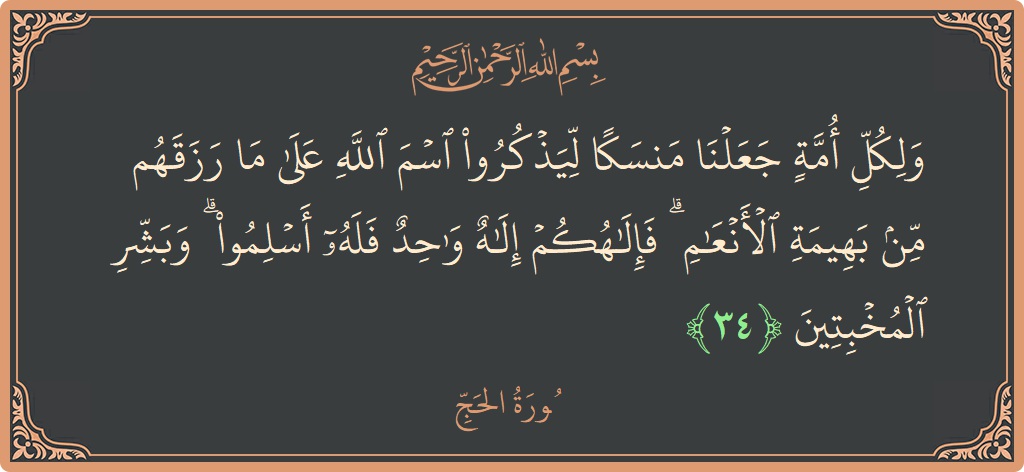 بِسْمِ اللهِ الرَّحْمٰنِ الرَّحِيْمِ
وَلِكُلِّ أُمَّةٍ جَعَلْنَا مَنسَكًا لِّيَذْكُرُوا۟ ٱسْمَ ٱللَّهِ عَلَىٰ مَا رَزَقَهُم
مِّنۢ بَهِيمَةِ ٱلْأَنْعَـٰمِ ۗ فَإِلَـٰهُكُمْ إِلَـٰهٌ وَٰحِدٌ فَلَهُۥٓ أَسْلِمُوا۟ ۗ وَبَشِّرِ
ٱلْمُخْبِتِينَ ﴿٣٤﴾
سُورَةُ الحَجِّ